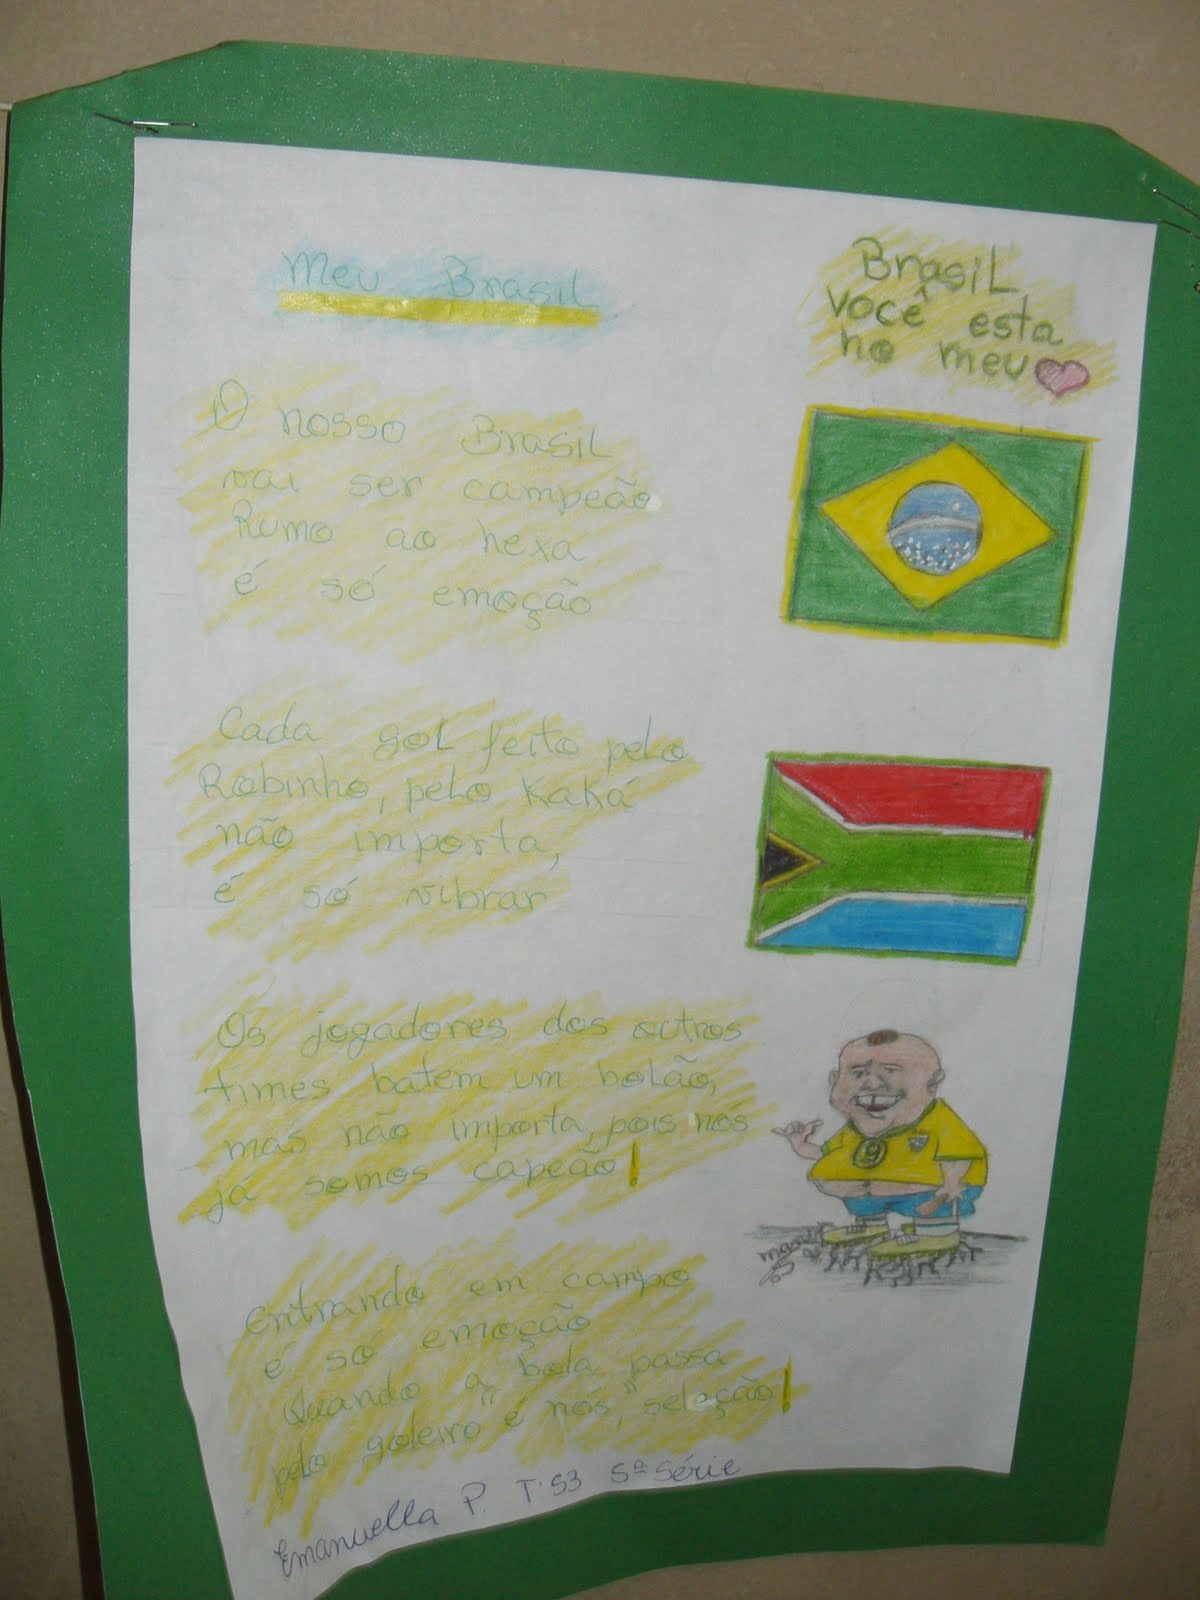 Meu Brasil
Brasil
você esta
no meu
O nosso Brasil
vai ser campeão
Rumo ao hexa
é só emoção
Cada gol feito pelo
Robinho, pelo Kaká
não importa,
é só vibrar
Os jogadores dos outros
times batem um bolão,
mas não importa, pois nós
já somos capeão!
9
Entrando em campo
é só emoção
Quando a bola passa
pelo goleiro "é nós" seleção!
Emanuella P. T.53 5ª Série